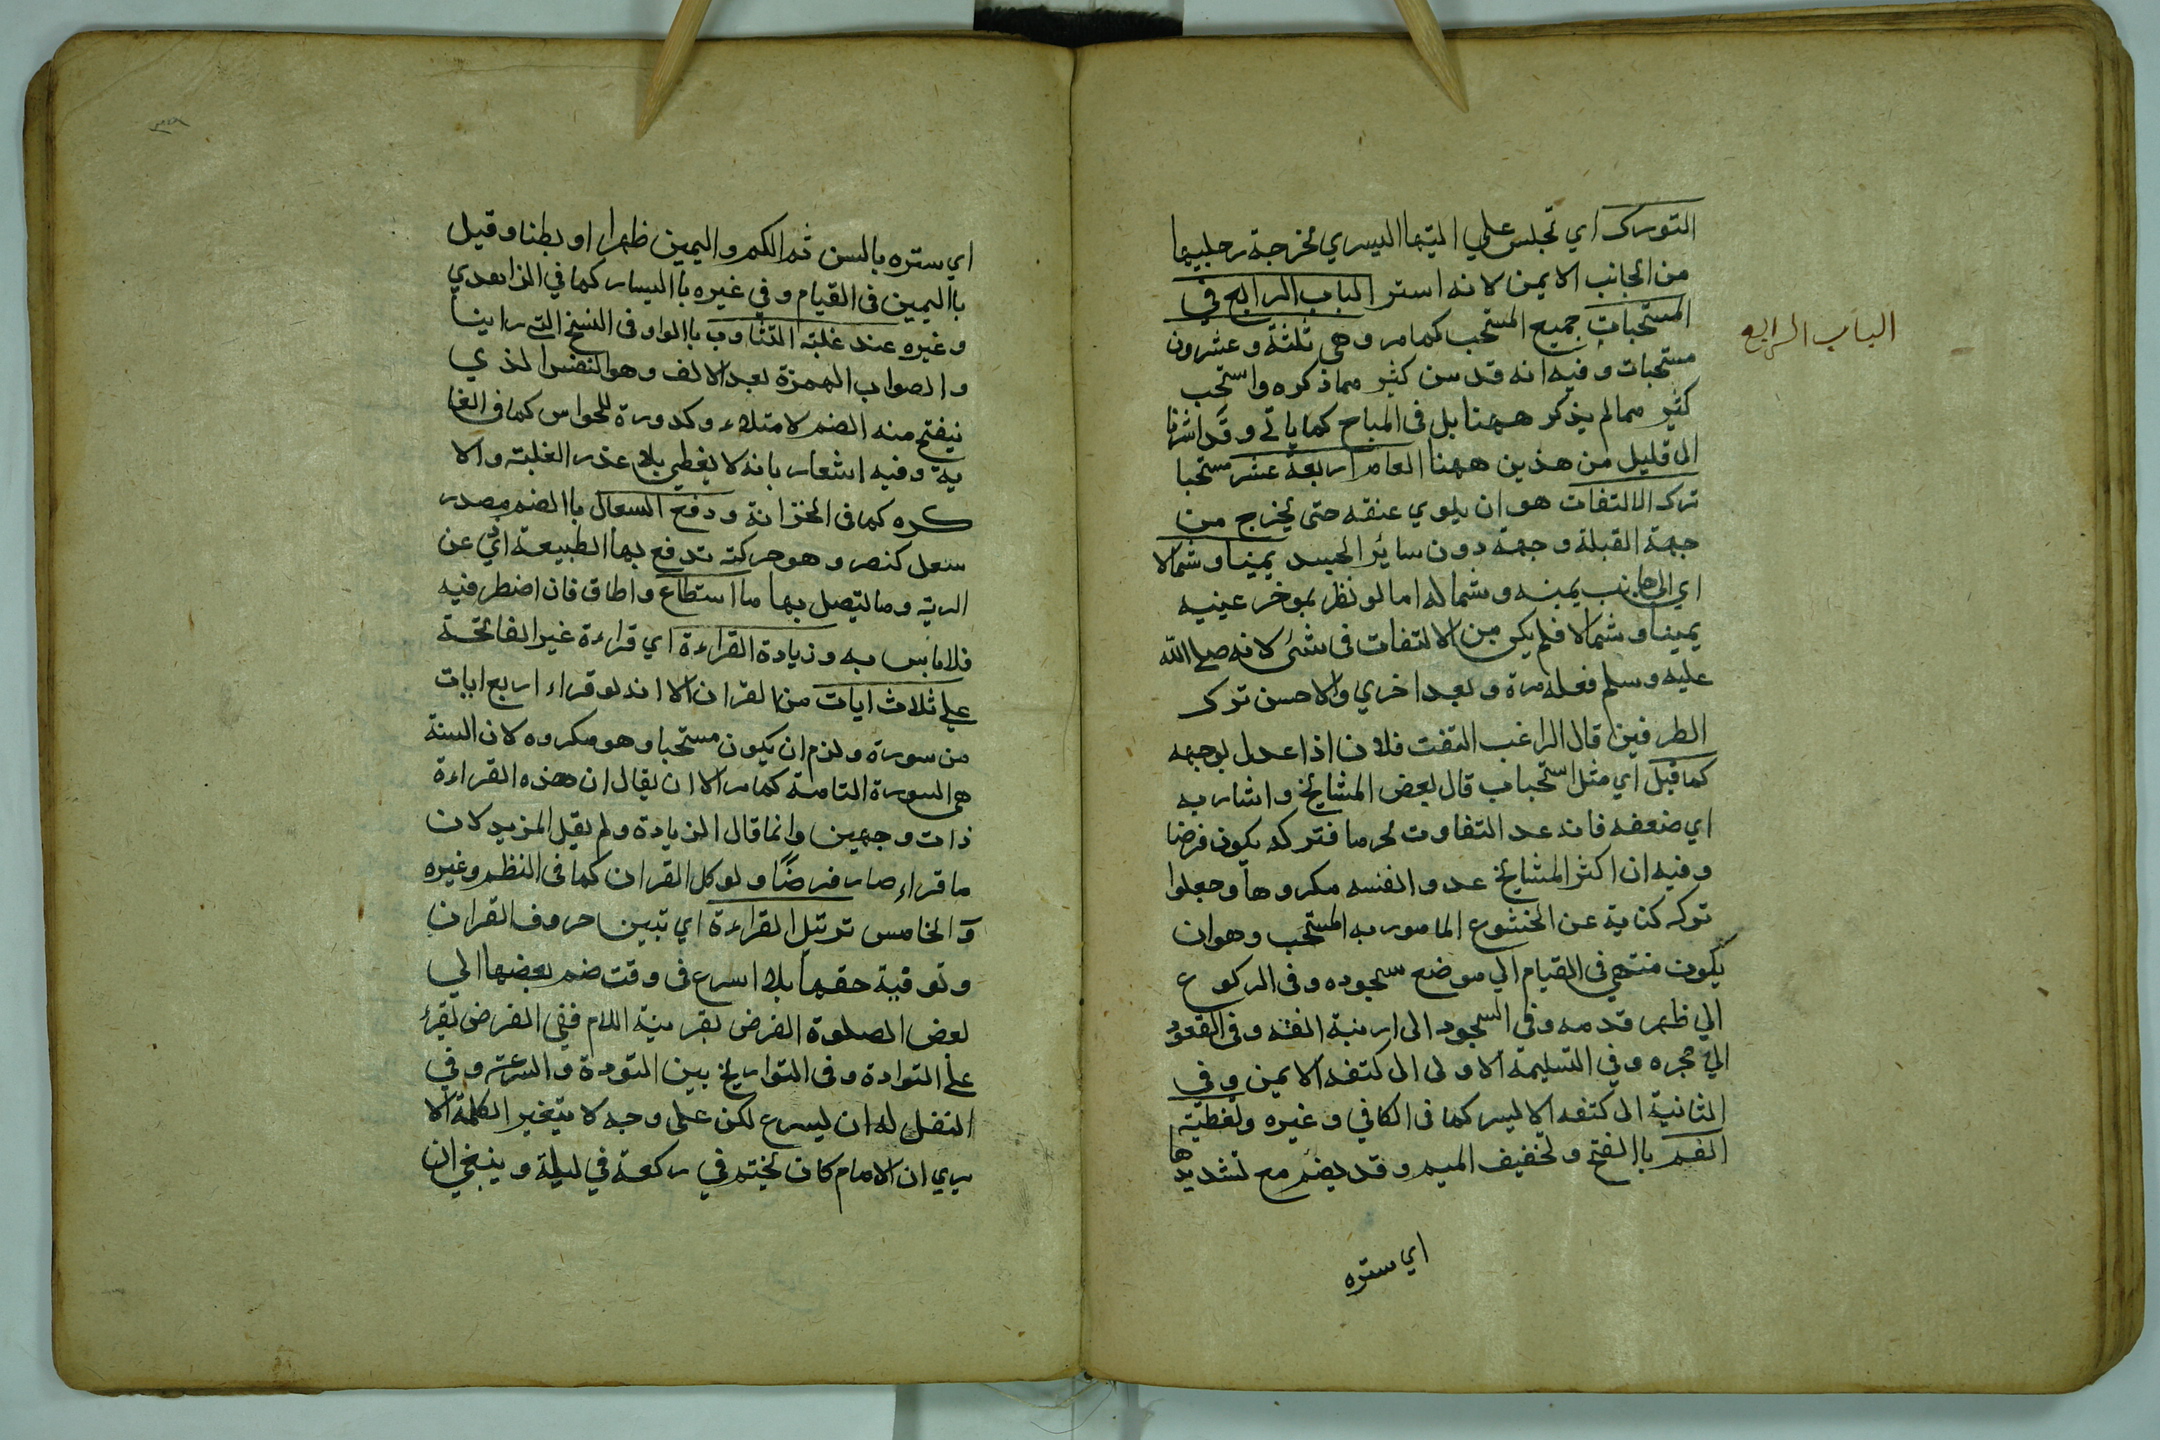 التورك اي تجلس علي اليتها اليسري مخرجة رجليها
من الجانب الايمن لانه استر الباب الرابع في
الباب الرابع
المستحبات جميع المستحب كمامر وهي ثلثة وعشرون
مستحبات وفيه انه قد سن كثير مماذكره واستحب
كثير ممالم يذكر ههنا بل فى المباح كما ياتى وقد اشرنا
الى قليل من هذين ههنا العام اربعة عشر مستحبا
ترك الالتفات هو ان يلوي عنقه حتى يخرج من
جهة القبلة وجهه دون ساير الجسد يمينا وشمالا
اي الى جانب يمينه وشماله اما لو نظر بموخر عينيه
يمينا وشمالا فلم يكن من الالتفات فى شئ لانه صلى الله
عليه وسلم فعله مرة وبعد اخري والاحسن ترك
الطرفين قال الراغب التفت فلان اذا عدل بوجهه
كما قيل اي مثل استحباب قال بعض المشايخ واشار به
اي ضعفه فانه عد التفاوت محرما فتركه يكون فرضا
وفيه ان اكثر المشايخ عدوا لفنسه مكروها وجعلوا
تركه كناية عن الخشوع المامور به المستحب وهوان
يكون منتهي فى القيام الي موضع سجوده وفى الركوع
الي ظهر قدمه وفى السجود الى ارنبة انفه وفى القعود
الي حجره وفي التسليمة الاولى الى كتفه الايمن وفي
الثانية الى كتفه الايسر كما فى الكافي وغيره وتغطية
الفم باالفتح وتخفيف الميم وقد يضم مع تشديدها
اي ستره
اي ستره بالسن ثم الكم واليمين ظهرا او بطنا وقيل
باليمين فى القيام وفي غيره باليسار كما في الزاهدي
وغيره عند غلبته التثاوب باالواو فى النسخ التى راينا
والصواب الهمزة بعد الالف وهو التنفس الذي
نيفتح منه الفم لامتلاء وكدورة للحواس كما فى الغا
ية وفيه اشعار بانه لا يغطي بلا عذر الغلبته والا
كره كما فى الخزانة ودفع السعال باالضم مصدر
سعل كنصر وهو حركته تدفع بها الطبيعة اذي عن
الرية وما يتصل بها ما استطاع واطاق فان اضطر فيه
فلا باس به وزيادة القراءة اي قراءة غير الفاتحة
علي ثلاث ايات من القران الا انه لو قراء اربع ايات
من سورة ولزم ان يكون مستحبا وهو مكروه لان السنة
هى السورة التامة كمامر الا ان يقال ان هذه القراءة
ذات وجهين وانما قال الزيادة ولم يقل المزيد لان
ما قراء صار فرضًا ولو كل القران كما فى النظم وغيره
والخامس ترتيل القراءة اي تبين حروف القران
وتوقية حقها بلا اسرع فى وقت ضم بعضها الي
بعض الصلوة الفرض بقرينة اللام ففي الفرض يقرء
على التوادة وفى التواريخ بين التودة والسرعة وفي
النفل له ان يسرع لكن على وجه لا يتغير الكلمة الا
يري ان الامام كان يختم في ركعة في ليلة وينبغي ان